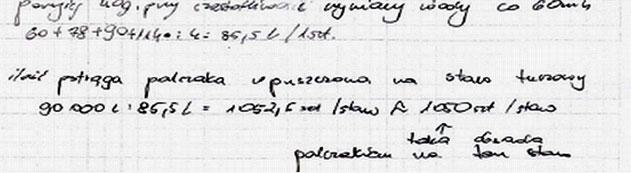 powyżej 40g. przy częstotliwości wymiany wody co 60min
60 + 78 + 90 + 114 : 4 = 85,5 L / 1szt.
ilość pstrąga palczaka wpuszczona na staw tuczowy
90 000 L : 85,5 L = 1052,6 szt / staw ≈ 1050 szt / staw
↑
taka obsada
palczaków na ten staw